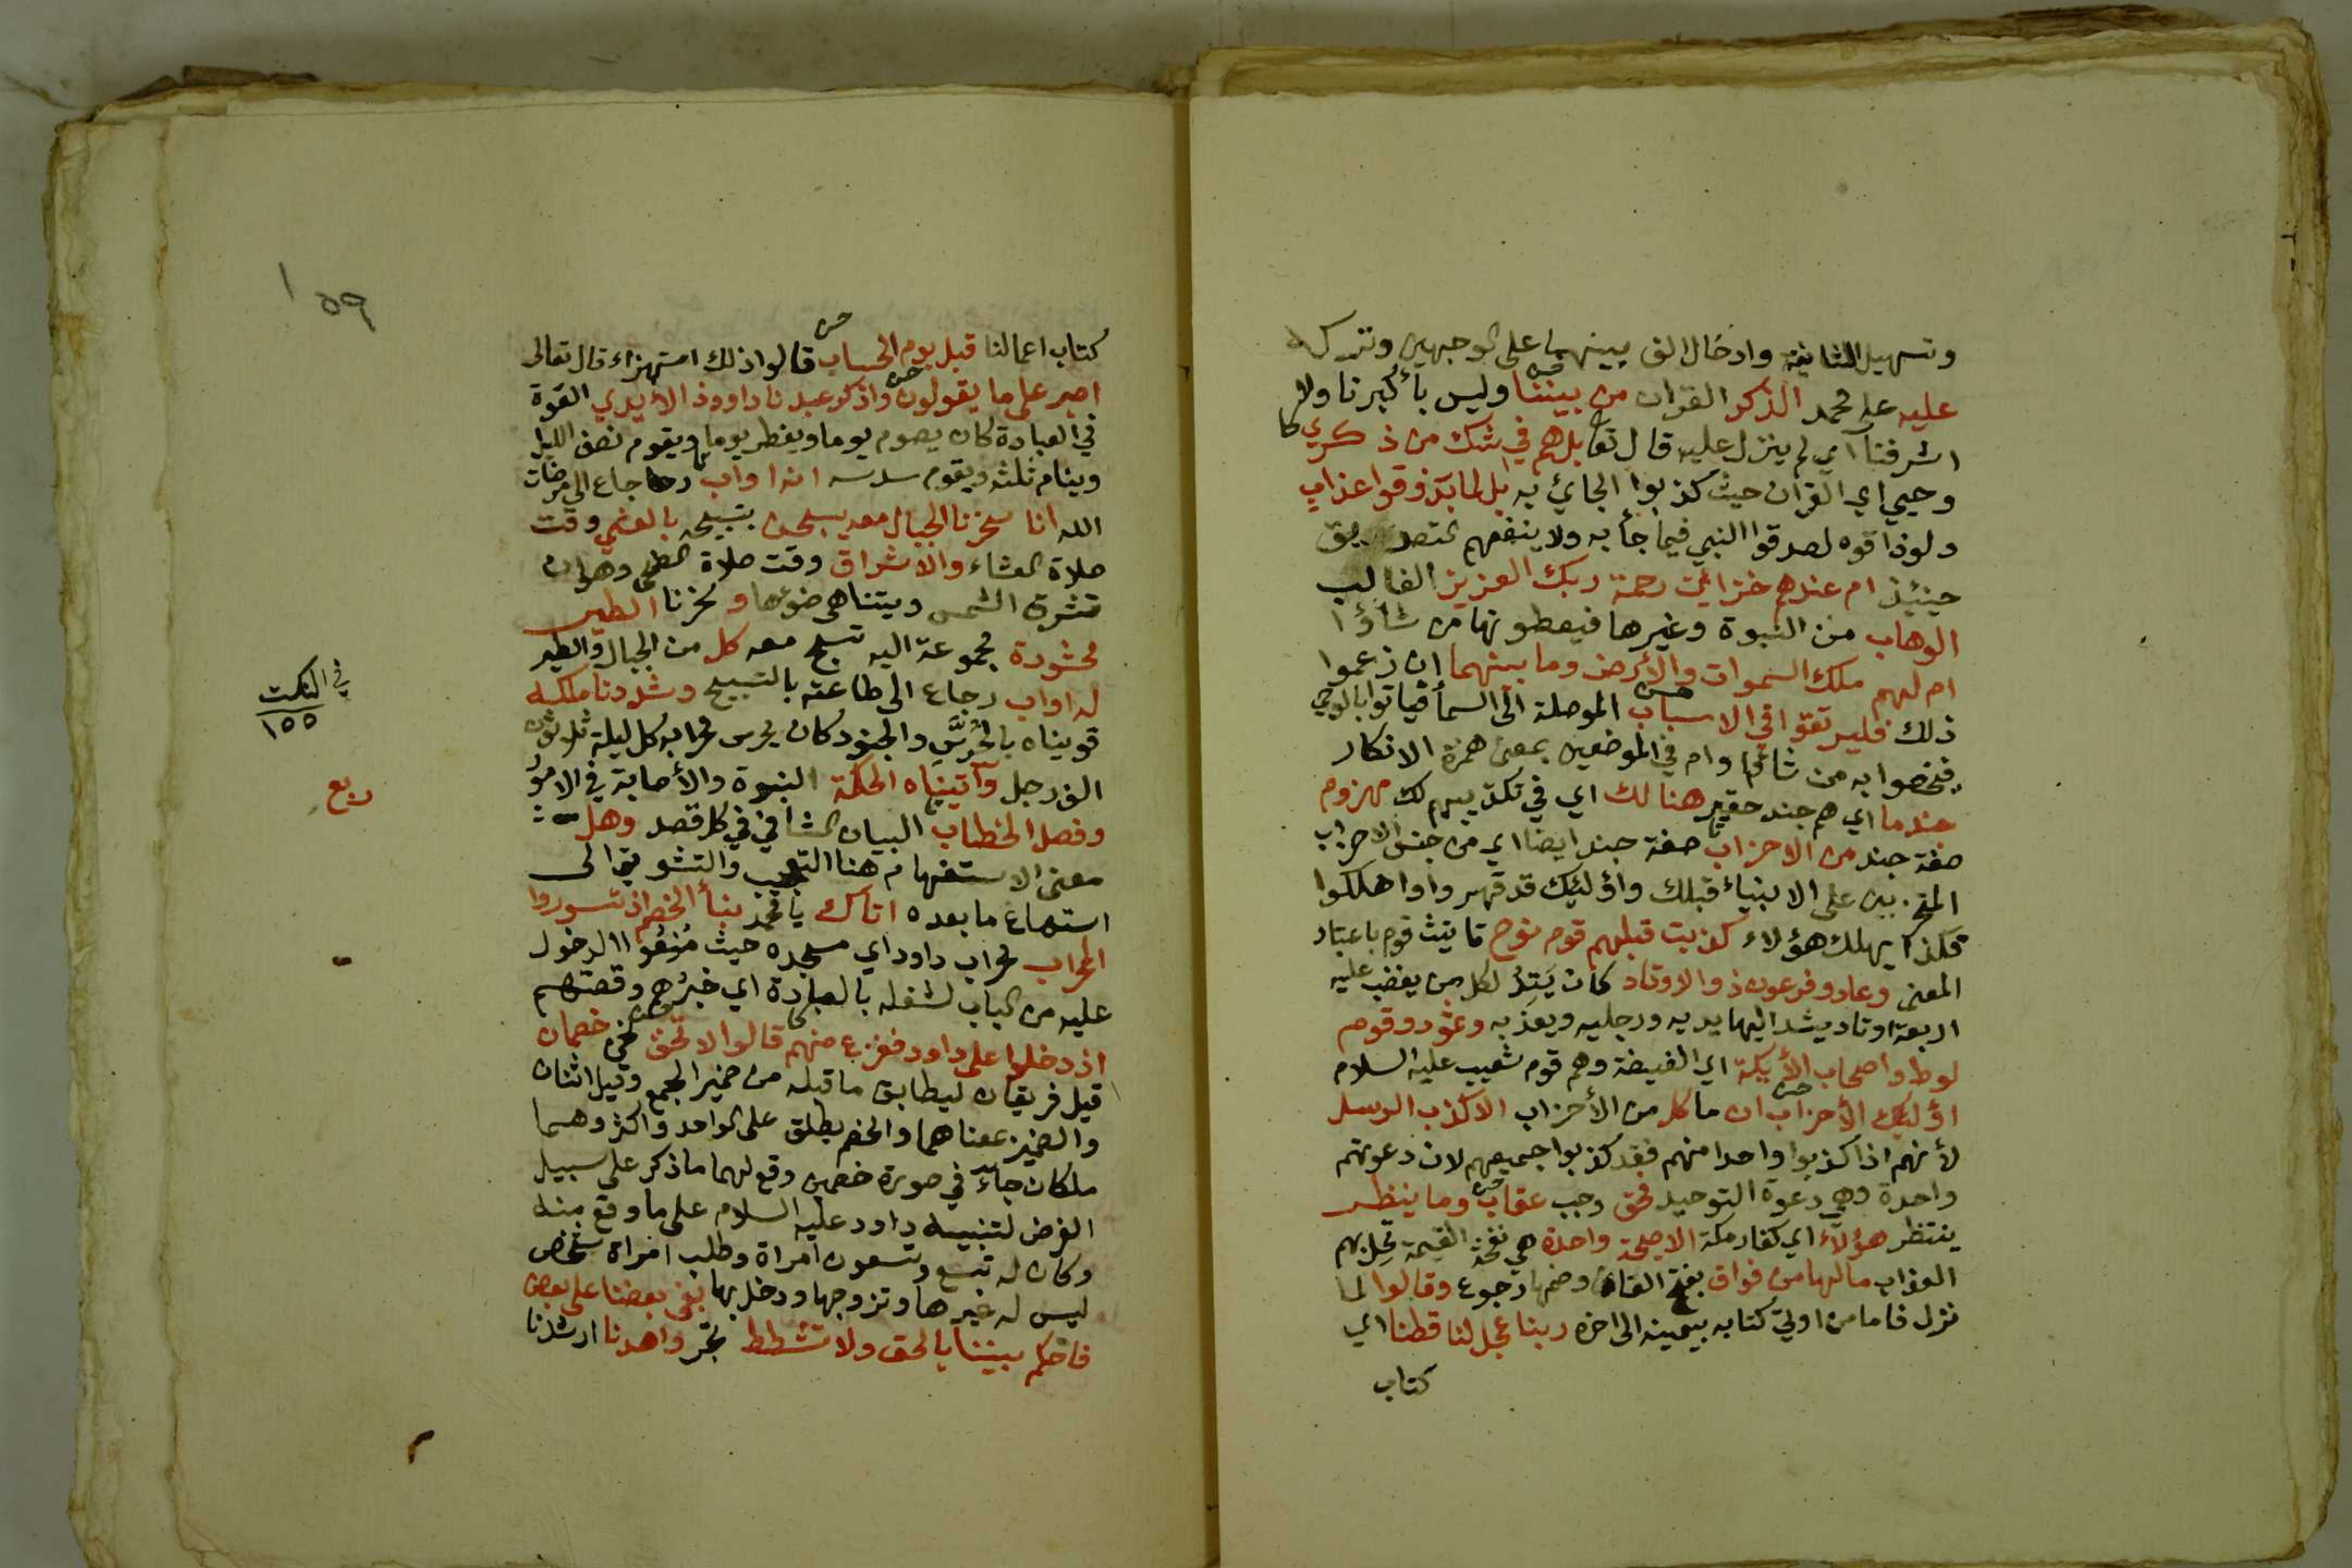 وتسهيل الثانية وادخال الف بينهما على الوجهين وتركه
عليه على محمد الذكر القران من بيننا وليس بأكبرنا ولا
اشرفنا اي لم ينزل عليه قال تعا بل هم في شك من ذكري
وحيي اي القران حيث كذبوا الجائي به بل لما يذوقوا عذاب
ولو ذاقوه لصدقوا النبي فيما جأ به ولا ينفعهم التصديق
حينئذ ام عندهم خزائن رحمة ربك العزيز الغالب
الوهاب من النبوة وغيرها فيعطونها من شاؤا
ام لهم ملك السموات والأرض وما بينهما ان زعموا
ذلك فليرتقوا في الاسباب الموصلة الى السمأ فياتوا بالوحي
فيخصوا به من شاؤا وام في الموضعين بمعنى همزة الانكار
جند ما اي هم جند حقير هنالك اي في تكذيبهم لك مهزوم
صفة جند من الاحزاب صفة جند ايضا اي من جنس الاحزاب
المتحزبين على الانبياء قبلك واؤلئك قد قهروا واهلكوا
فكذا يهلك هؤلاء كذبت قبلهم قوم نوح تانيث قوم باعتبار
المعنى وعاد وفرعون ذو الاوتاد كان يَتِدُ لكل من يغضب عليه
اربعة اوتاد يشد اليها يديه ورجليه ويعذبه وثمود وقوم
لوط واصحاب الأيكة اي الغيضة وهم قوم شعيب عليه السلام
اؤلئك الأحزاب ان ما كل من الأحزاب الا كذب الرسل
لأنهم اذا كذبوا واحدا منهم فقد كذبوا جميعهم لان دعوتهم
واحدة وهي دعوة التوحيد فحق وجب عقاب وما ينظر
ينتظر هؤلاء اي كفار مكة الا صيحة واحدة هي نفخة القيمة تحل بهم
العذاب مالها من فواق بفتح الفاء وضمها رجوع وقالوا لما
نزل فاما من اوتي كتابه بيمينه الى اخره ربنا عجل لنا قطنا اي
كتاب
١٥٩
كتاب اعمالنا قبل يوم الحساب قالوا ذلك استهزاء قال تعالى
اصبر على ما يقولون واذكر عبدنا داوود ذا الأيدي القوة
في العبادة كان يصوم يوما ويفطر يوما ويقوم نصف الليل
وينام ثلثه ويقوم سدسه انه اواب رجاع الى مرضات
الله انا سخرنا الجبال معه يسبحن بتسبيحه بالعشي وقت
صلاة العشاء والاشراق وقت صلاة الضحى وهو ان
تشرق الشمس ويتناهى ضوءها وسخرنا الطير
محشورة مجموعة اليه تسبح معه كل من الجبال والطير
له اواب رجاع الى طاعته بالتسبيح وشددنا ملكه
قويناه بالحُرَّسِ والجنود كان يحرس محرابه كل ليلة ثلاثون
الف رجل وآتيناه الحكمة النبوة والأصابة في الامور
وفصل الخطاب البيان الشافي في كل قصد وهل
معنى الاستفهام هنا التعجيب والتشويق الى
استماع ما بعده اتاك يا محمد نبأ الخصم اذ تسوروا
المحراب محراب داود اي مسجده حيث مُنِعُوا الدخول
عليه من الباب لشغله بالعبادة اي خبرُهم وقصتهم
اذ دخلوا على داود ففزع منهم قالوا لا تخف نحن خصمان
قيل فريقان ليطابق ما قبله من ضمير الجمع وقيل اثنان
والضمير بمعناهما والخصم يطلق على الواحد واكثر وهما
ملكان جاءَ في صورة خصمين وقع لهما ما ذكر على سبيل
الفرض لتنبيه داود عليه السلام على ما وقع منه
وكان له تسع وتسعون امراة وطلب امراة شخص
ليس له غيرها وتزوجها ودخل بها بغى بعضنا على بعض
فاحكم بيننا بالحق ولا تشطط تجر واهدنا ارشدنا
في النكت
١٥٥
ربع